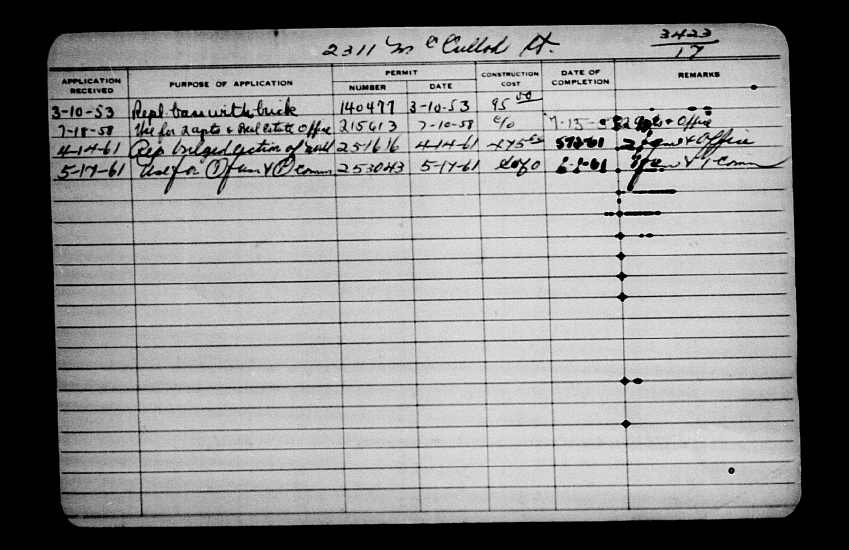 2311 McCulloh St. 3423
17
APPLICATION RECEIVED PURPOSE OF APPLICATION PERMIT NUMBER DATE CONSTRUCTION COST DATE OF COMPLETION REMARKS
3-10-53 Repl. bass with brick 140477 3-10-53 95 00
7-18-58 Use for 2 apts & Real Estate Office 215613 7-10-58 c/o 2 apts & Office
4-14-61 Rep bulged section of wall 251616 4-14-61 & Office
5-17-61 Use for (1) fam & (1) comm 253043 5-17-61 1 fam & 1 Comm